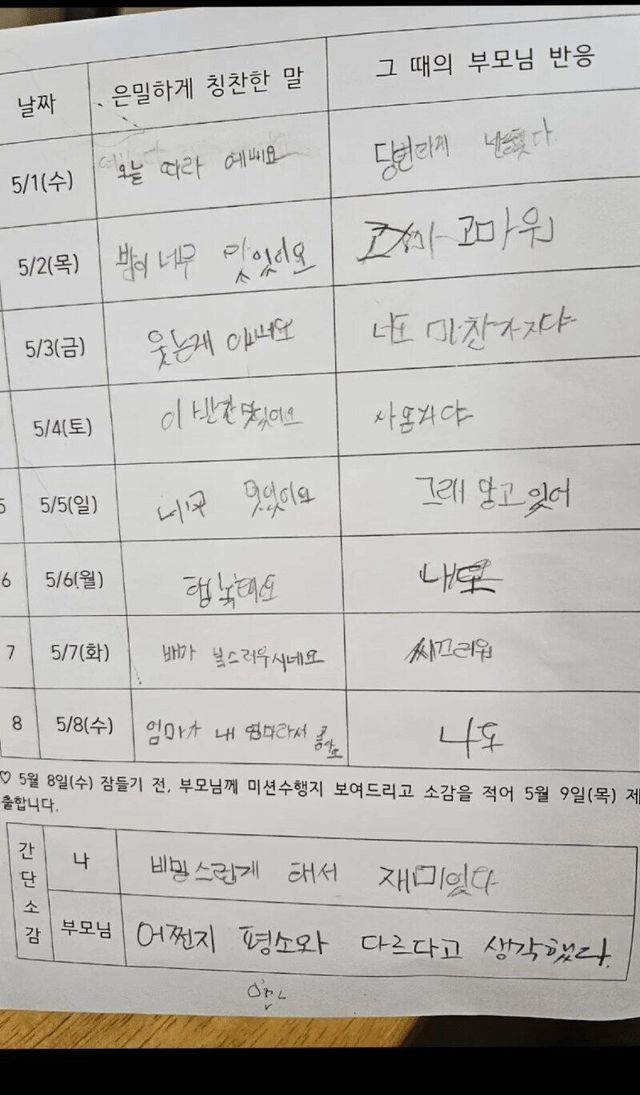 날짜 은밀하게 칭찬한 말 그 때의 부모님 반응
5/1(수) 오늘 따라 예뻐요
5/2(목) 밥이 너무 맛있어요 고마워
5/3(금) 웃는게 이뻐요 너도 마찬가지야
5/4(토) 이 반찬 맛있어요
5/5(일) 멋있어요 그래 알고 있어
6 5/6(월) 행복해요
7 5/7(화) 배가 복스러우시네요 씨끄러워
8 5/8(수) 엄마가 내 엄마라서 좋아요 나도
♡ 5월 8일(수) 잠들기 전, 부모님께 미션수행지 보여드리고 소감을 적어 5월 9일(목) 제
출합니다.
간단소감
나 비밀스럽게 해서 재미있다
부모님 어쩐지 평소와 다르다고 생각했다.